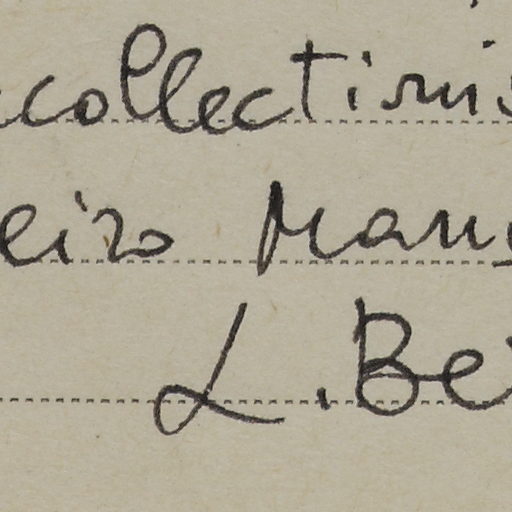 collectivis
eiro Manu
L. Be